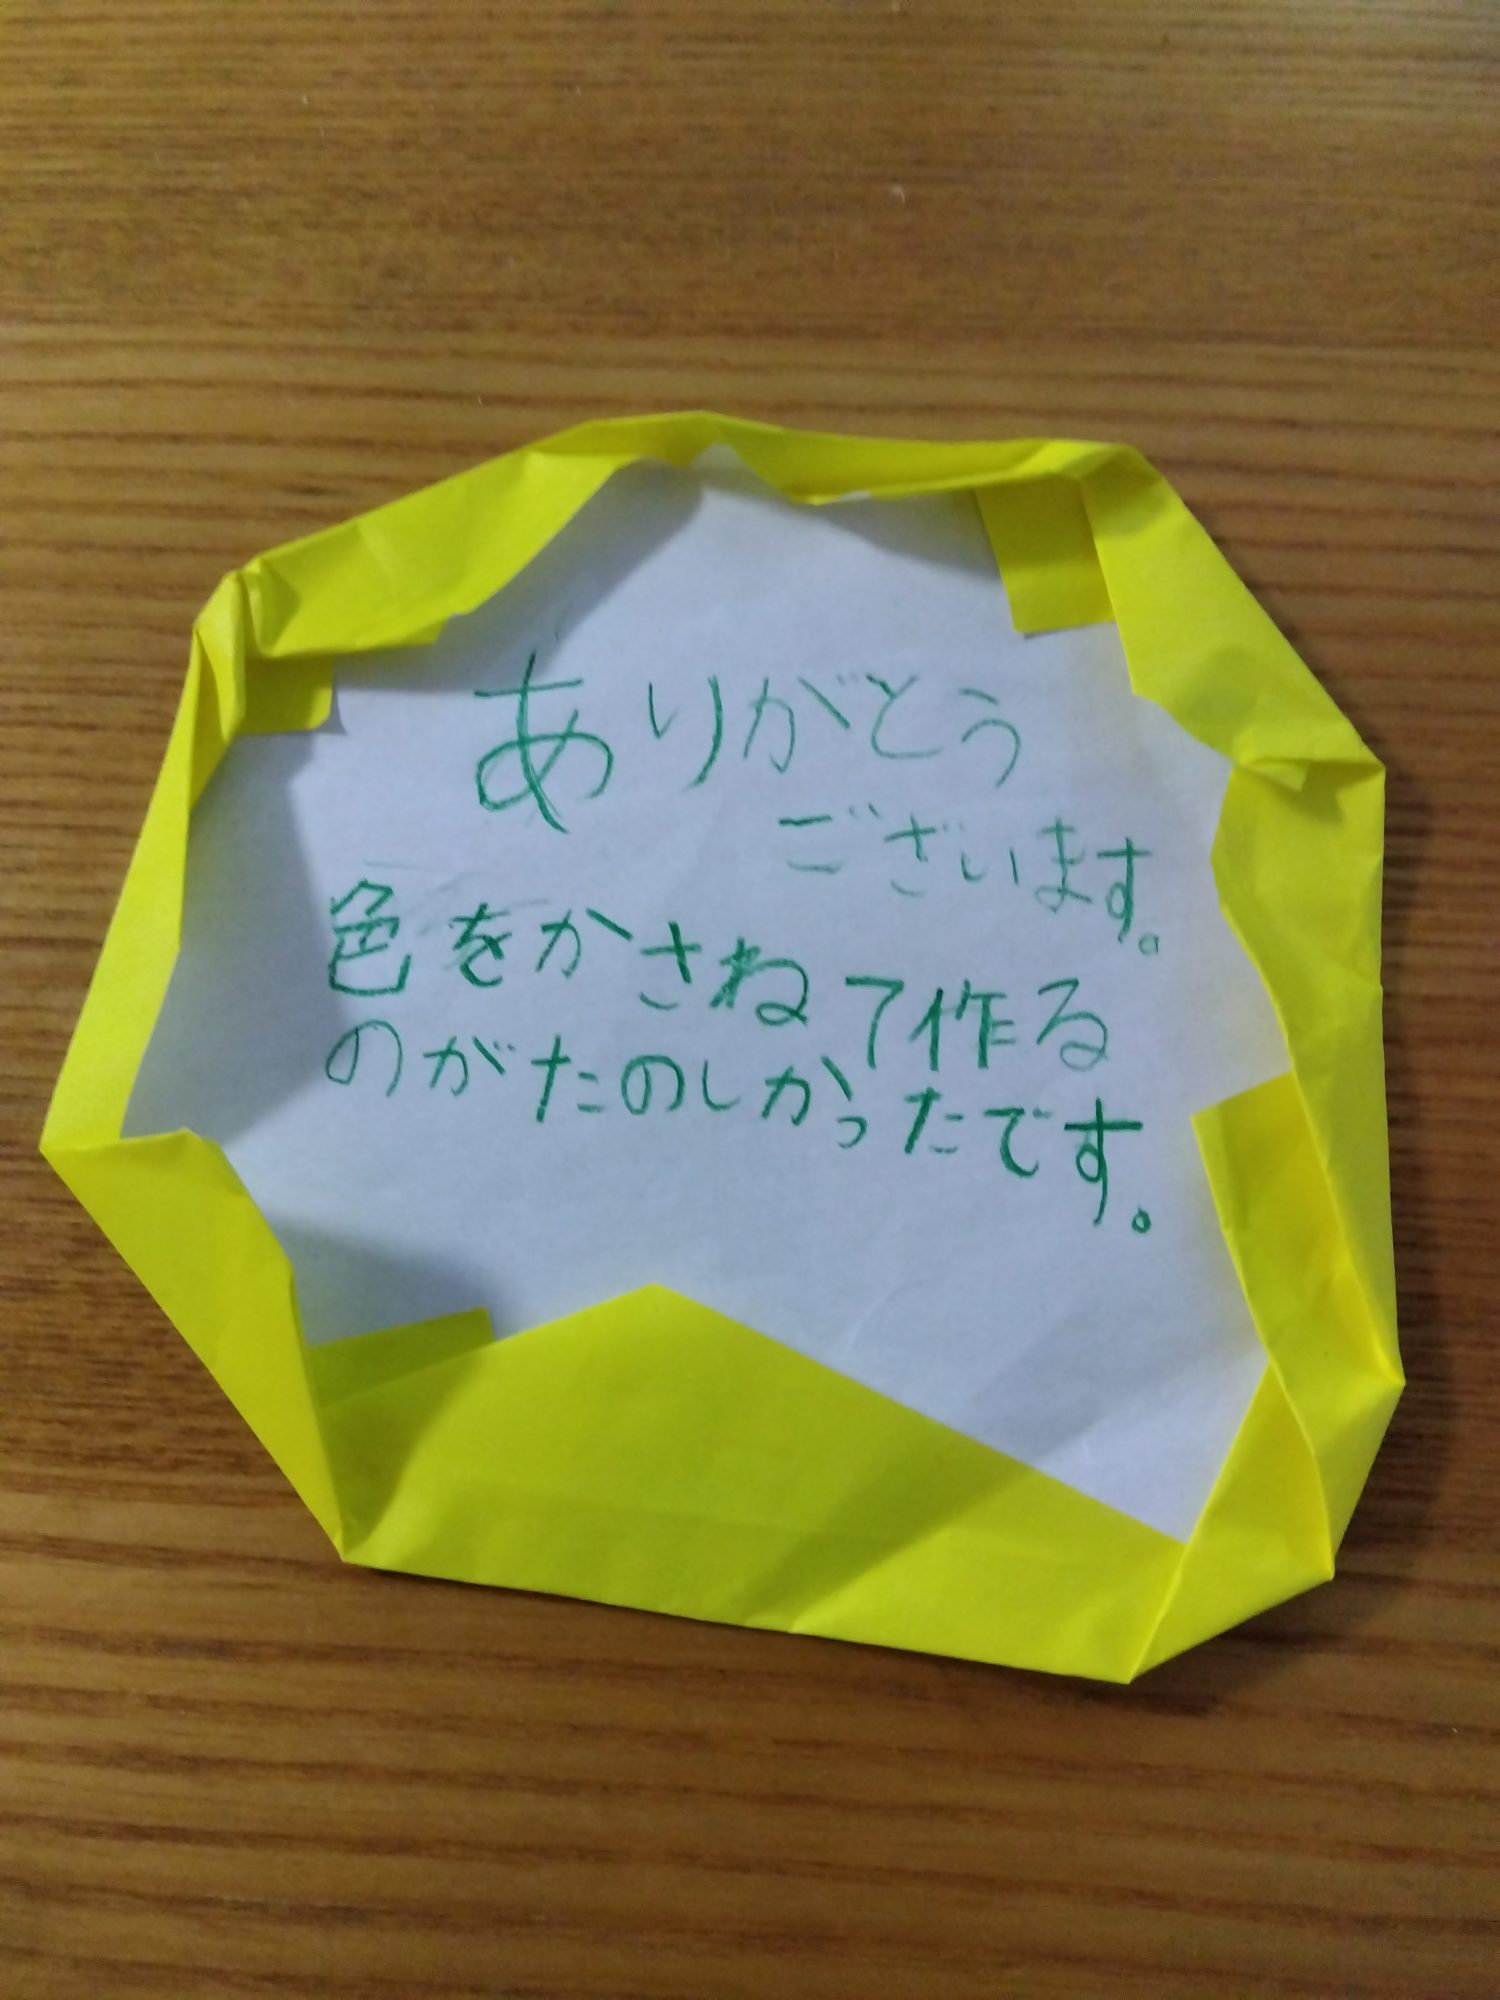 ありがとう
ございます。
色をかさねて作る
のがたのしかったです。